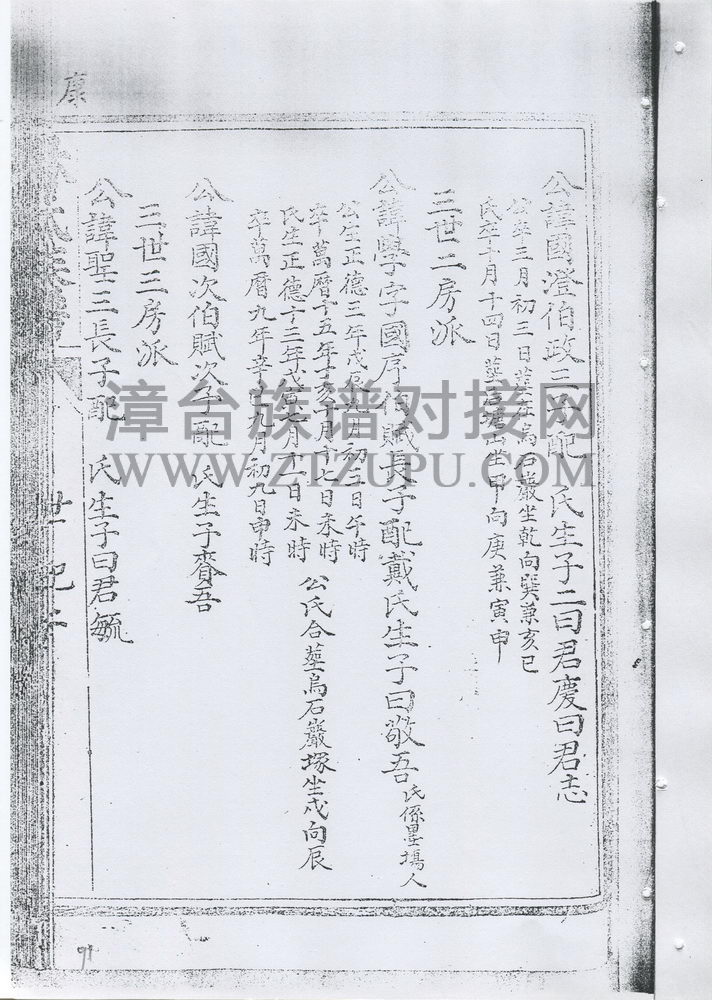 康
公諱國澄伯政三子配 氏生子二曰君慶曰君志
公卒三月初三日葬在烏石巖坐乾向巽兼亥巳
氏卒十月十四日葬 山坐甲向庚兼寅申
三世二房派
公諱學字國序伯賦長子配戴氏生子曰敬吾 氏係墨場人
公生正德三年戊辰九月初三日午時
卒萬曆十五年丁亥十月十七日未時
氏生正德十三年戊寅 月十一日未時
卒萬曆九年辛巳九月初九日申時
公氏合塟烏石巖塚坐戌向辰
公諱國次伯賦次子配 氏生子賽吾
三世三房派
公諱聖三長子配 氏生子曰君毓
氏族譜
世紀
91
漳台族谱对接网
WWW.ZTZUPU.COM